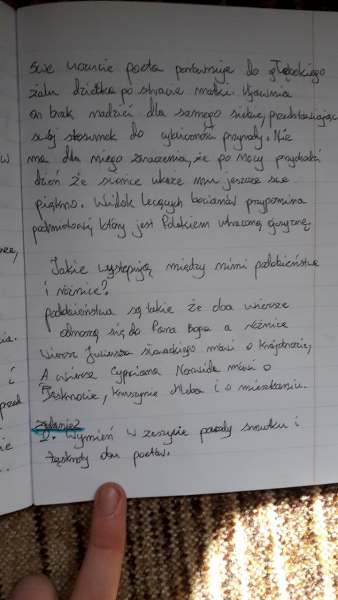 swe uczucie poeta porównuje do głębokiego
żalu dziecka po stracie matki. Ujawnia
on brak nadzieii dla samego siebie, przedstawiając
swój stosunek do cykliczności przyrody. Nie
ma dla niego znaczenia, że po nocy przychodzi
dzień że słońce ukaże mu jeszcze swe
piękno. Widok lecących bocianów przypomina
podmiotowi, który jest Polakiem utraconą ojczyznę.
Jakie występują między nimi podobieństwa
i różnice?
podobieństwa są takie że oba wiersze
odnoszą się do Pana Boga a różnice
wiersz Juliusza Słowackiego mówi o krajobrazie,
A wiersz Cypriana Norwida mówi o
Tęsknocie, kruszynie chleba i o mieszkaniu.
zadanie 2
D. Wymień w zeszycie powody smutku i
tęsknoty obu poetów.